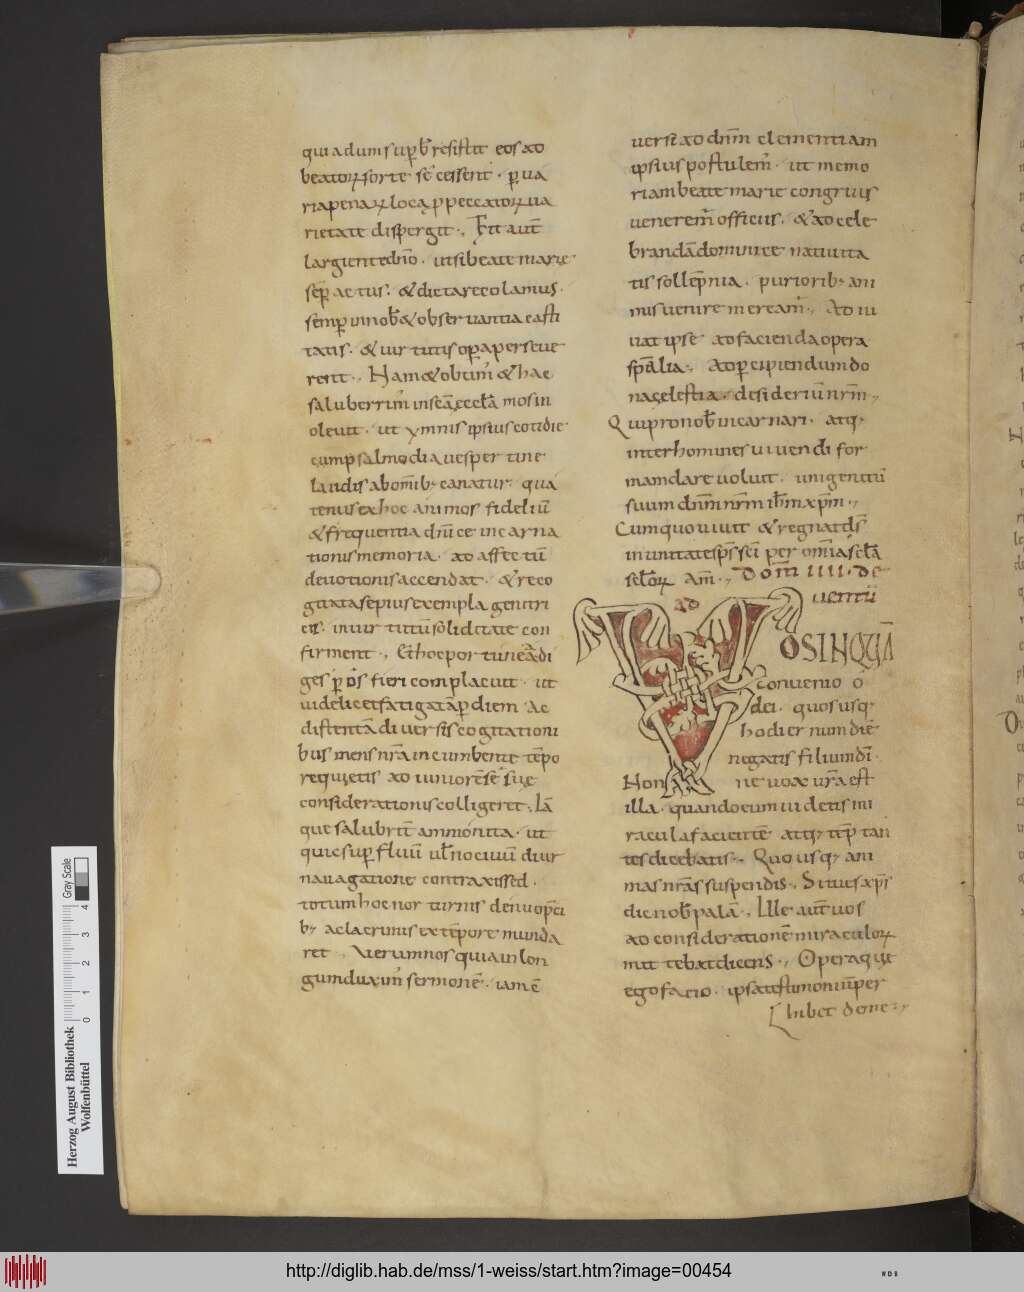 qui adum sup̄b̄ resistit eos ad
beatoꝝ sorte sē cessent · ꝑ ua
ria penaꝝ loca ꝓ peccatoꝝ ua
rietate dispergit ·, Fit aut̄
largiente dn̄o · ut si beate marię
sēp actus · & dicta recolamus ·
semꝑ in nob̄ & obseruantia casti
tatis · & uirtutis oꝑa perseue
rent ·, Nam & obtim̄ & hae
saluberrim̄ in sc̄a ęccl̄a mos in
oleuit · ut ymnis ipsius cotidie
cum psalmodia uespertine
laudis ab om̄ib; canatur · qua
tenus ex hoc animos fideliū
& frequentia dn̄ice incarna
tionis memoria · ad affectū
deuotionis accendat · & reco
gitata sepius exempla genitri
cis · in uirtutū soliditate con
firment ·, Et hoc portune a di
ges ꝑ ōs fieri complacuit · ut
uidelicet fatigata ꝑ diem ac
distenta diuersis cogitationi
bus mens nr̄a incumbente tēpo
re quietis ad iunioresē suę
considerationis colligeret ·, Ia
que salubrit̄ ammonita · ut
quic supfluū ul̄ nociuū diur
na uagatione contraxissed ·
totum hoc nocturnis denuo p̄ci
b; ac lacrimis ex tēpore munda
ret ·, Verum nos quia in lon
gum duxim̄ sermonē · iam ē
uersi ad dn̄m clementiam
ipsius postulem̄ · ut memo
riam beate marie congruis
uenerem̄ officiis · & ad cele
brandā dominice natiuita
tis sollēpnia · puriorib; ani
mis uenire mereām̄ ·, Adiu
uat ipse ad facienda opera
sp̄alia · Ad ꝑcipiendum do
na cęlestia · desideriū nr̄m ·,
Qui pro nob̄ incarnari · atq;
inter homines uiuendi for
mam dare uoluit · unigenitū
suum dn̄m nr̄m ih̄m xp̄m ·,
Cum quo uiuit & regnat d̄s
in unitate sp̄s sc̄i per om̄ia sc̄la
sc̄loꝝ am̄ ·, Dom̄ IIII · de
aduentū
VOS INQUĀ
conuenio o
dei · quos usq;
hodiernum diē
negatis filium dī ·
Nonne uox ur̄a est
illa · quando eum uidetis mi
racula facientē atq; tēptan
tes dicebatis · Quo usq; ani
mas nr̄as suspendis · Si tu es xp̄s
dic nob̄ palā ·, Ille aut̄ uos
ad considerationē miraculoꝝ
mittebat dicens ·, Opera quę
ego facio · ipsa testimonium̄ per
hibet de me ·,
Herzog August Bibliothek
Wolfenbüttel
0 1 2 3 4
Gray Scale
http://diglib.hab.de/mss/1-weiss/start.htm?image=00454